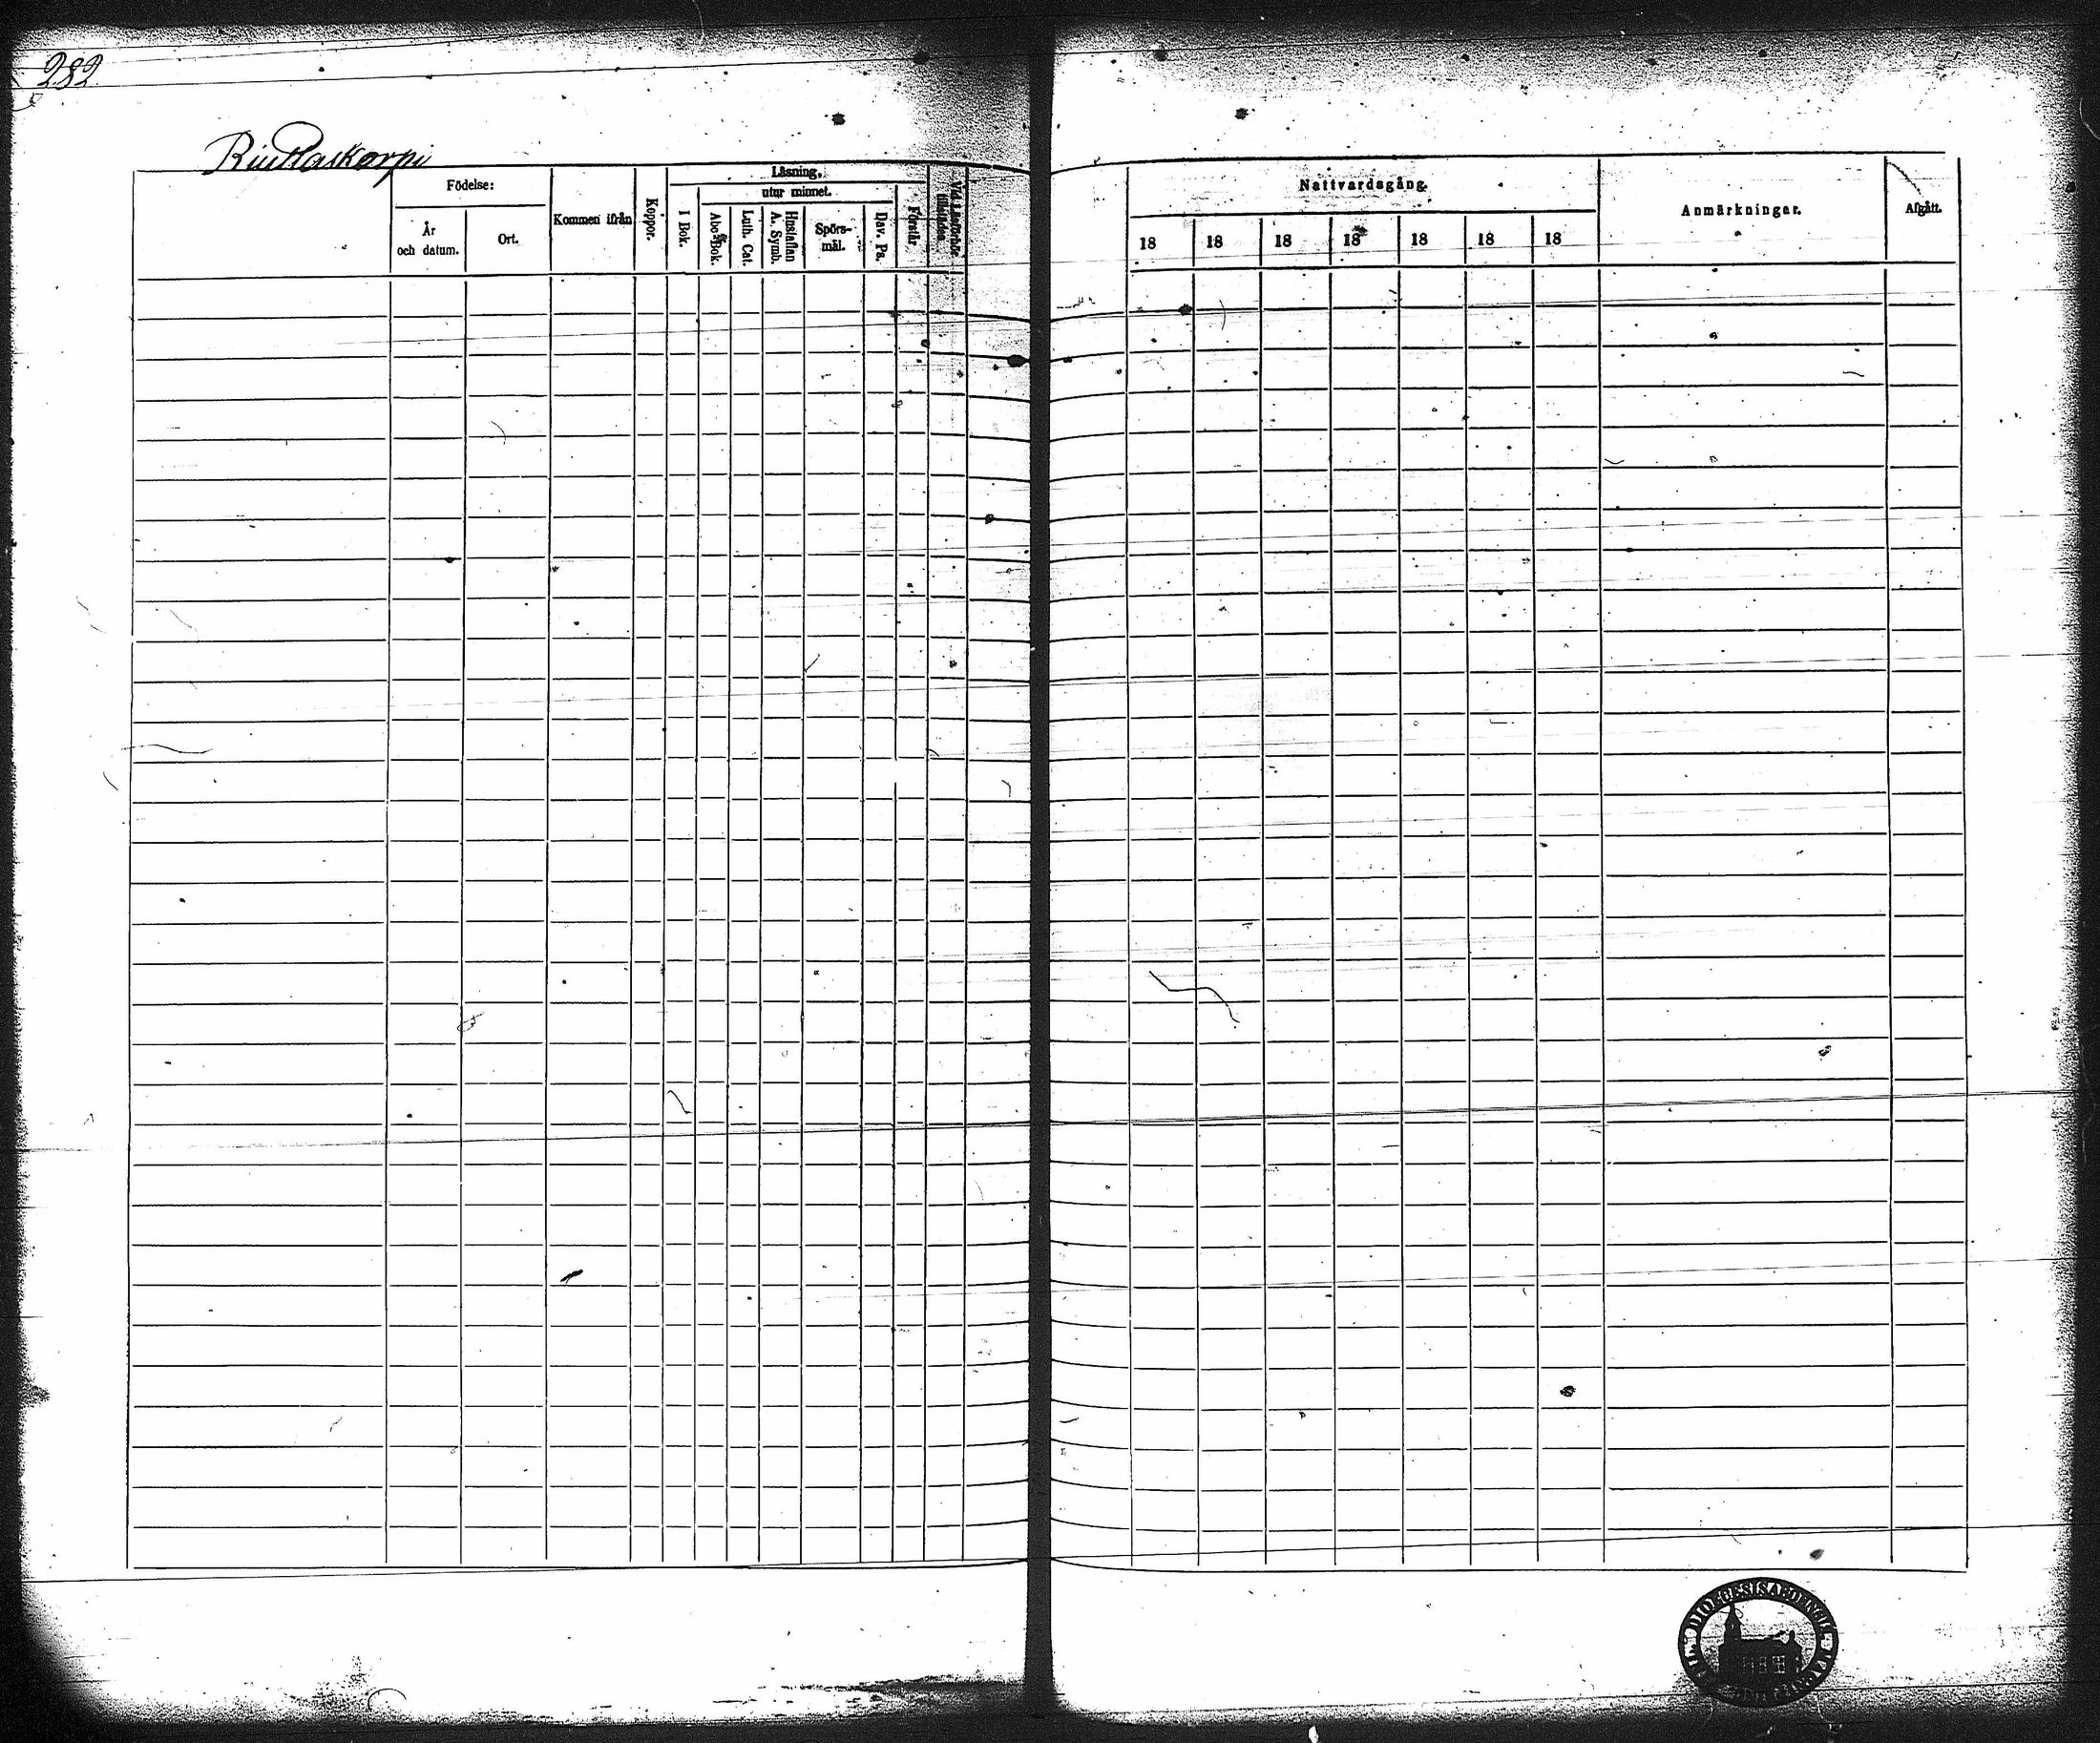 282
Födelse:
År
och datum.
Ort.
Kommen ifrån
Koppor.
Läsning,
I Bok.
utur minnet.
Abc-Bok.
Luth. Cat.
Hustaflan
A. Symb.
Spörs-
mål.
Dav. Ps.
Förstår.
Vid Läsförhör
tillstädes.
Nattvardsgång.
18 18 18 18 18 18 18
Anmärkningar.
Afgått.